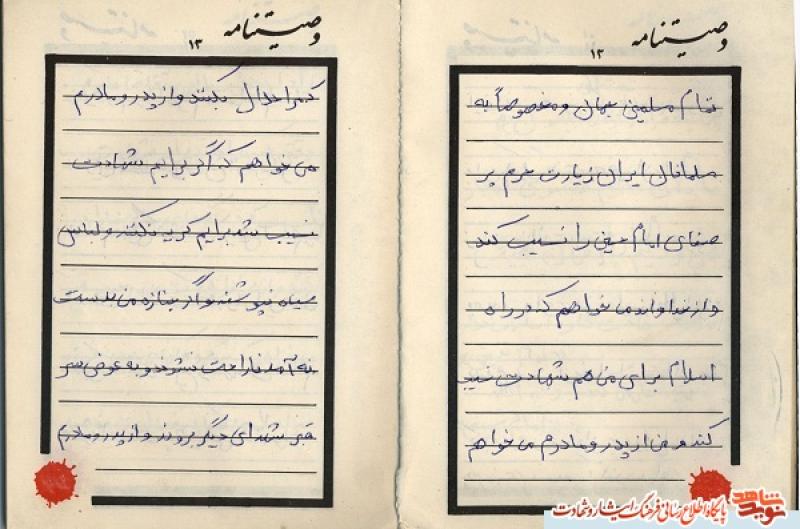 وصیتنامه
۱۲
تمام مسلمین جهان و مخصوصاً به
مسلمانان ایران زیارت حرم پر
صفای امام حسین را نسیب کند
و از خداوند می خواهم که در راه
اسلام برای من هم شهادت نسیب
کند و من از پدر و مادرم می خواهم
وصیتنامه
۱۳
که مرا حلال بکنند و از پدر و مادرم
می خواهم که اگر برایم شهادت
نسیب شد برایم گریه نکنند و لباس
سیاه نپوشند و اگر جنازه من بدست
نه آمد ناراحت نشوند و به عوض سر
قبر شهدای دیگر بروند و از پدر و مادرم
نوید شاهد
پایگاه اطلاع رسانی فرهنگ ایثار و شهادت